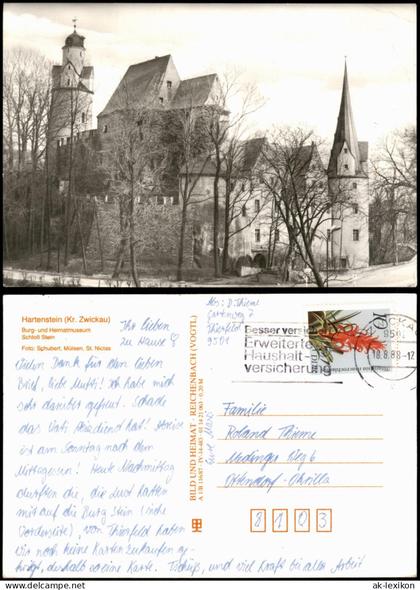 Hartenstein (Kr. Zwickau)
Burg- und Heimatmuseum
Schloß Stein
Foto: Schubert, Mülsen, St. Niclas
Ihr lieben
zu Hause!
Vielen Dank für den lieben
Brief, liebe Mutti! Ich habe mich
sehr darüber gefreut. Schade
das Vati Reisedienst hat!
ist am Sonntag nach dem
Mittagessen! Heute Nachmittag
durften die, die Lust hatten
mit auf die Burg Stein (siehe
Vorderseite), von Thierfeld haben
wir noch keine Karten zu kaufen ge-
kriegt, deshalb so eine Karte. Tschüß, und viel Kraft bei aller Arbeit
BILD UND HEIMAT · REICHENBACH (VOGTL)
A 1/B 116/87 IV-14-483 01 14 21 063 0,20 M
Abs: D. Thieme
Gartenweg 2
Thierfeld
9501
Besser versi
Erweiterte
Haushalt-
versicherung
10
DDR
950
18.8.88-12
Familie
Roland Thieme
Medinger Weg 6
Ottendorf-Okrilla
8103
ak-lexikon